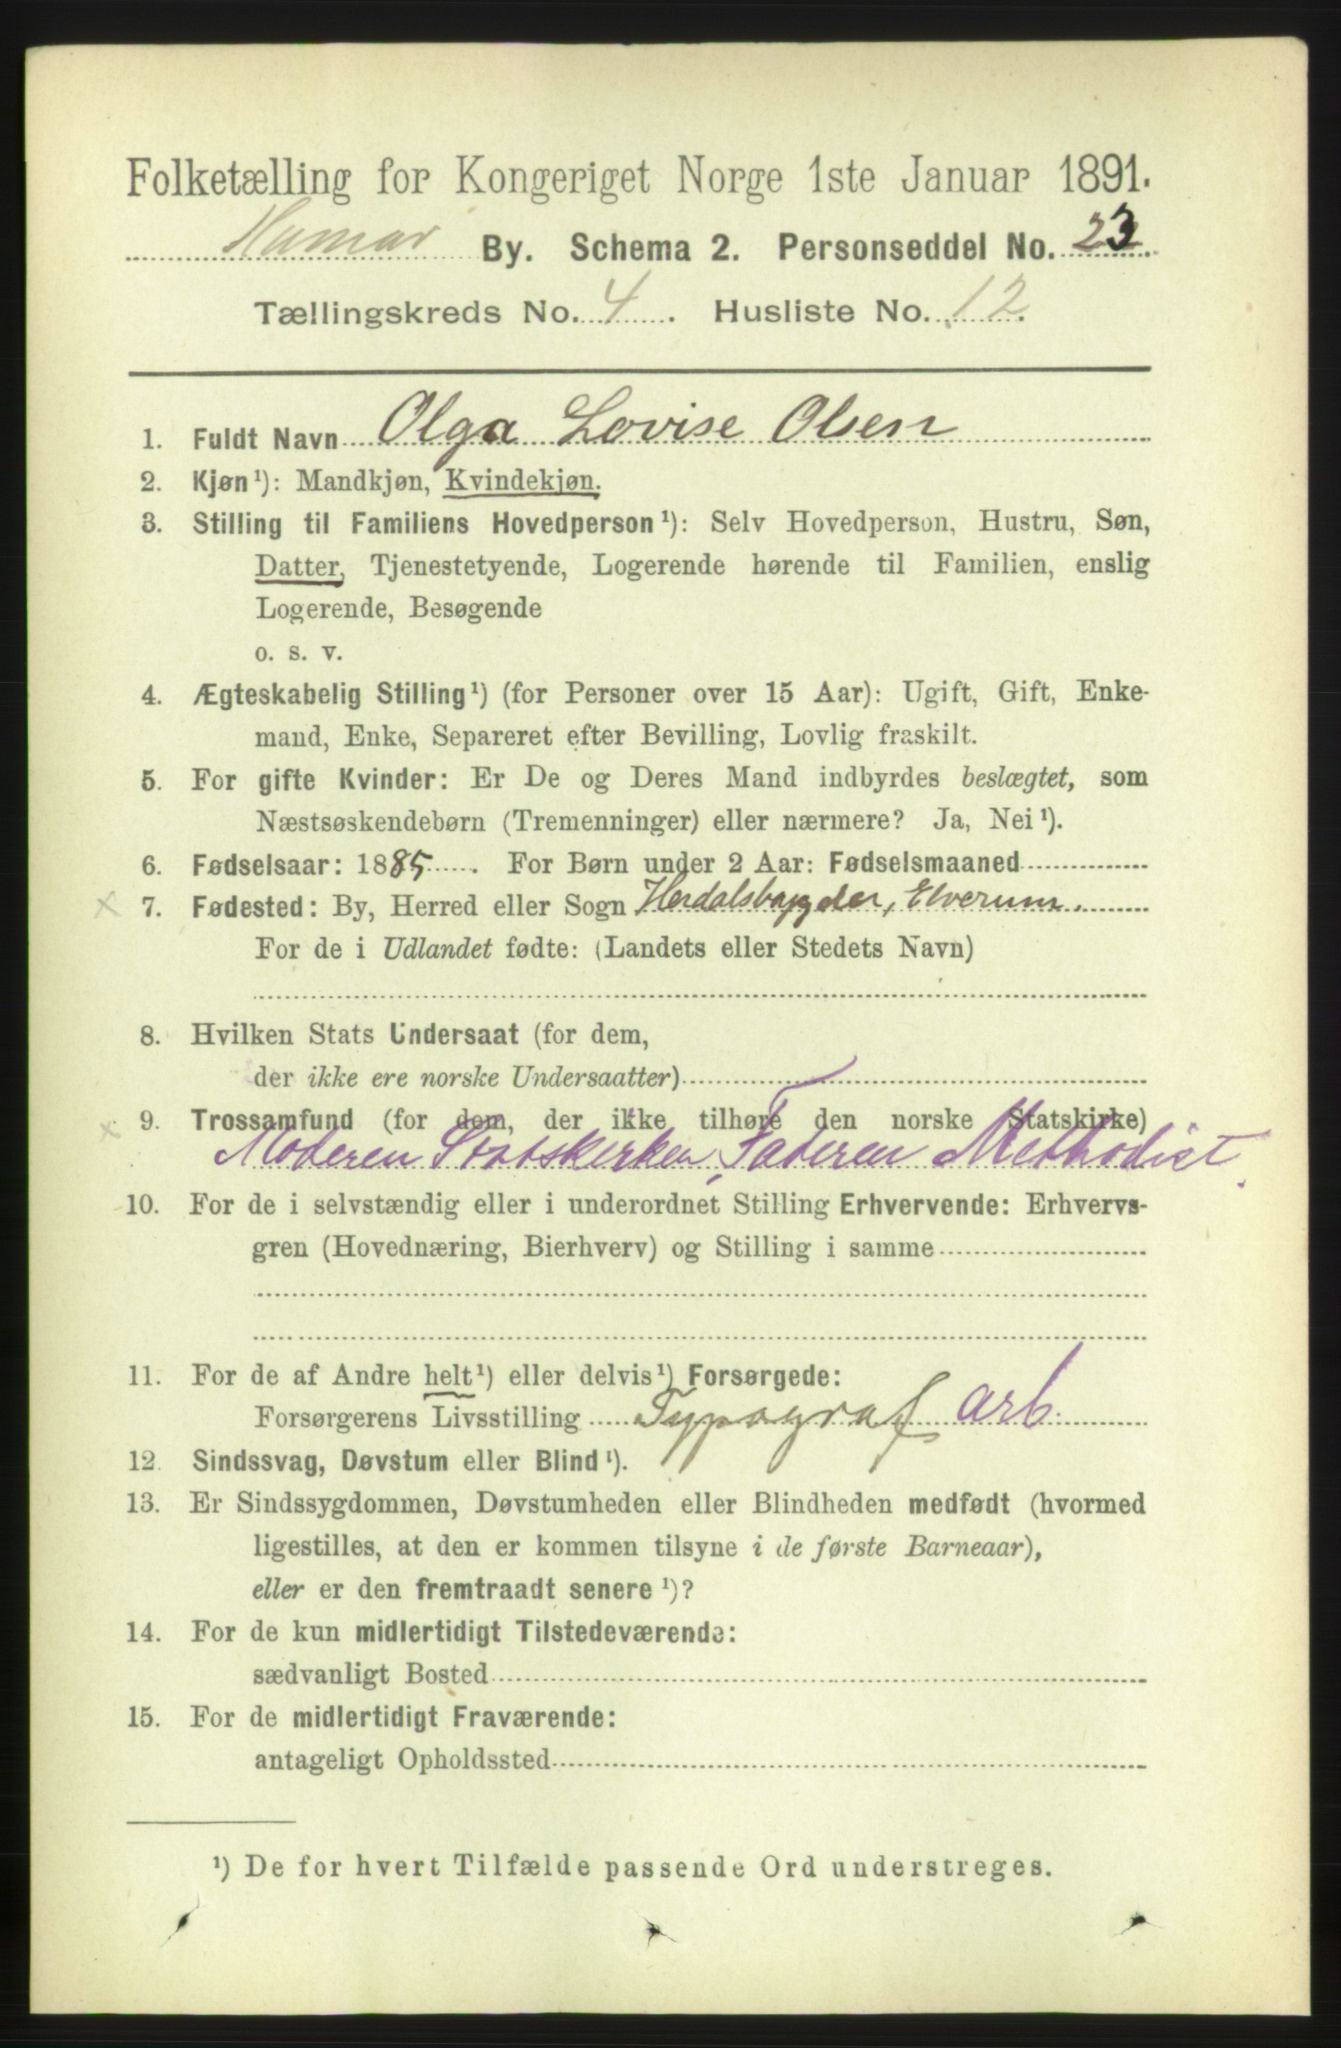 Folketælling for Kongeriget Norge 1ste Januar 1891.
Hamar By. Schema 2. Personseddel No. 23.
Tællingskreds No. 4. Husliste No. 12.
1. Fuldt Navn Olga Lovise Olsen
2. Kjøn¹): Mandkjøn, Kvindekjøn.
3. Stilling til Familiens Hovedperson¹): Selv Hovedperson, Hustru, Søn,
Datter, Tjenestetyende, Logerende hørende til Familien, enslig
Logerende, Besøgende
o. s. v.
4. Ægteskabelig Stilling¹) (for Personer over 15 Aar): Ugift, Gift, Enke-
mand, Enke, Separeret efter Bevilling, Lovlig fraskilt.
5. For gifte Kvinder: Er De og Deres Mand indbyrdes beslægtet, som
Næstsøskendebørn (Tremenninger) eller nærmere? Ja, Nei¹).
6. Fødselsaar: 1885. For Børn under 2 Aar: Fødselsmaaned
7. Fødested: By, Herred eller Sogn Herdalsbygden, Elverum.
For de i Udlandet fødte: (Landets eller Stedets Navn)
8. Hvilken Stats Undersaat (for dem,
der ikke ere norske Undersaatter)
9. Trossamfund (for dem, der ikke tilhøre den norske Statskirke)
Moderen Statskirken, Faderen Methodist.
10. For de i selvstændig eller i underordnet Stilling Erhvervende: Erhvervs-
gren (Hovednæring, Bierhverv) og Stilling i samme
11. For de af Andre helt¹) eller delvis¹) Forsørgede:
Forsørgerens Livsstilling Typograf arb.
12. Sindssvag, Døvstum eller Blind¹).
13. Er Sindssygdommen, Døvstumheden eller Blindheden medfødt (hvormed
ligestilles, at den er kommen tilsyne i de første Barneaar),
eller er den fremtraadt senere¹)?
14. For de kun midlertidigt Tilstedeværende:
sædvanligt Bosted
15. For de midlertidigt Fraværende:
antageligt Opholdssted
¹) De for hvert Tilfælde passende Ord understreges.